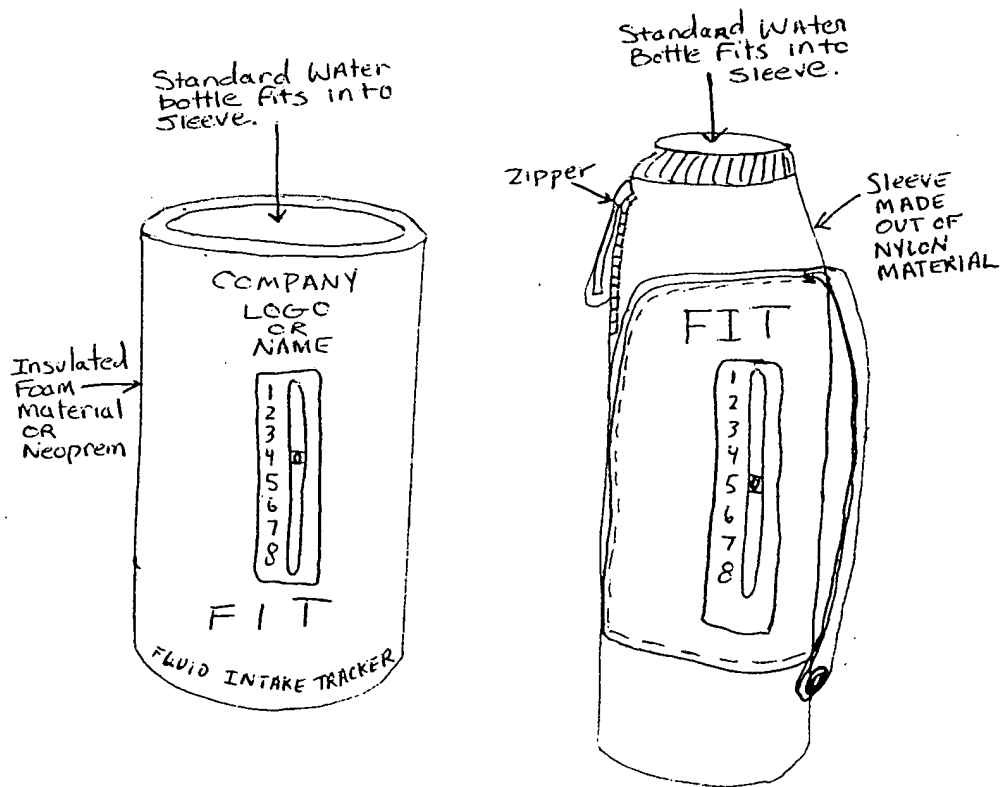 Standard WAter
bottle fits into
Sleeve.
COMPANY
LOGO
OR
NAME
Insulated
Foam
Material
OR
Neoprem
1
2
3
4
5
6
7
8
FIT
FLUID INTAKE TRACKER
Standard WAter
Bottle Fits into
Sleeve.
Zipper
SLEEVE
MADE
OUT OF
NYLON
MATERIAL
FIT
1
2
3
4
5
6
7
8